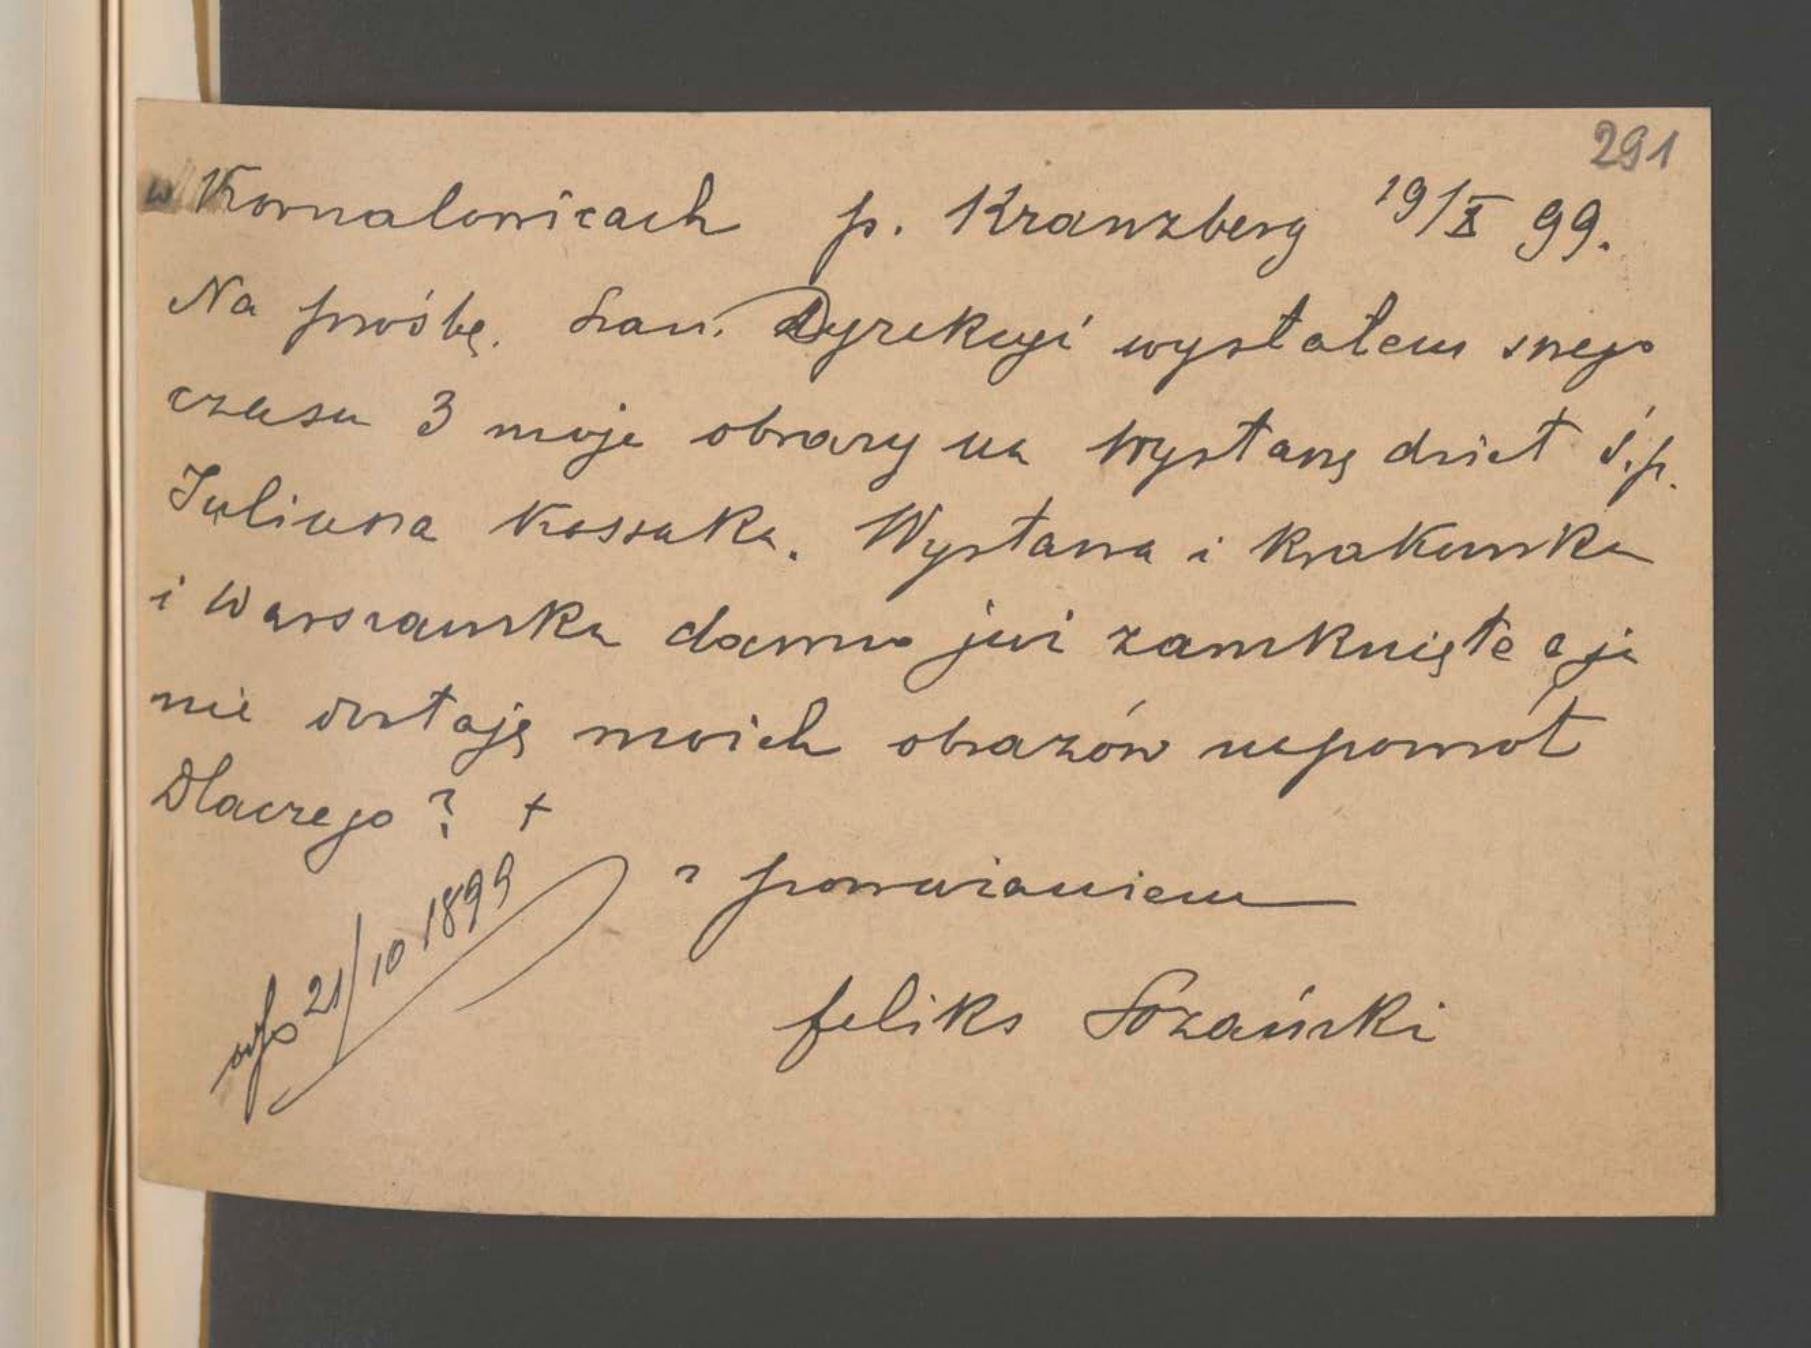 291
w Kornalowicach p. Kranzberg 19/X 99.
Na prośbę. Szan. Dyrekcyi wysłałem swego
czasu 3 moje obrazy na Wystawę dzieł ś.p.
Juliusza Kossaka. Wystawa i Krakowska
i Warszawska dawno już zamknięte a ja
nie dostaję moich obrazów napowrót
Dlaczego? +
z poważaniem
Feliks Sozański
21/10 1899